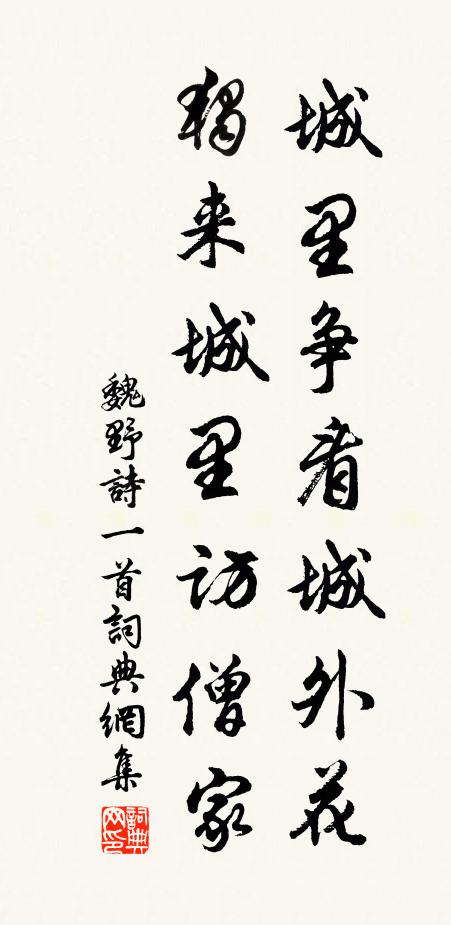 城里争看城外花
独来城里访僧家
魏野詩一首詞典網集
詞典网印